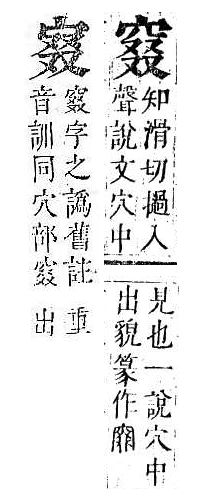 窡
知滑切撾入
聲說文穴中
見也一說穴中
出貌篆作
窡字之譌舊註重
音訓同穴部窡出